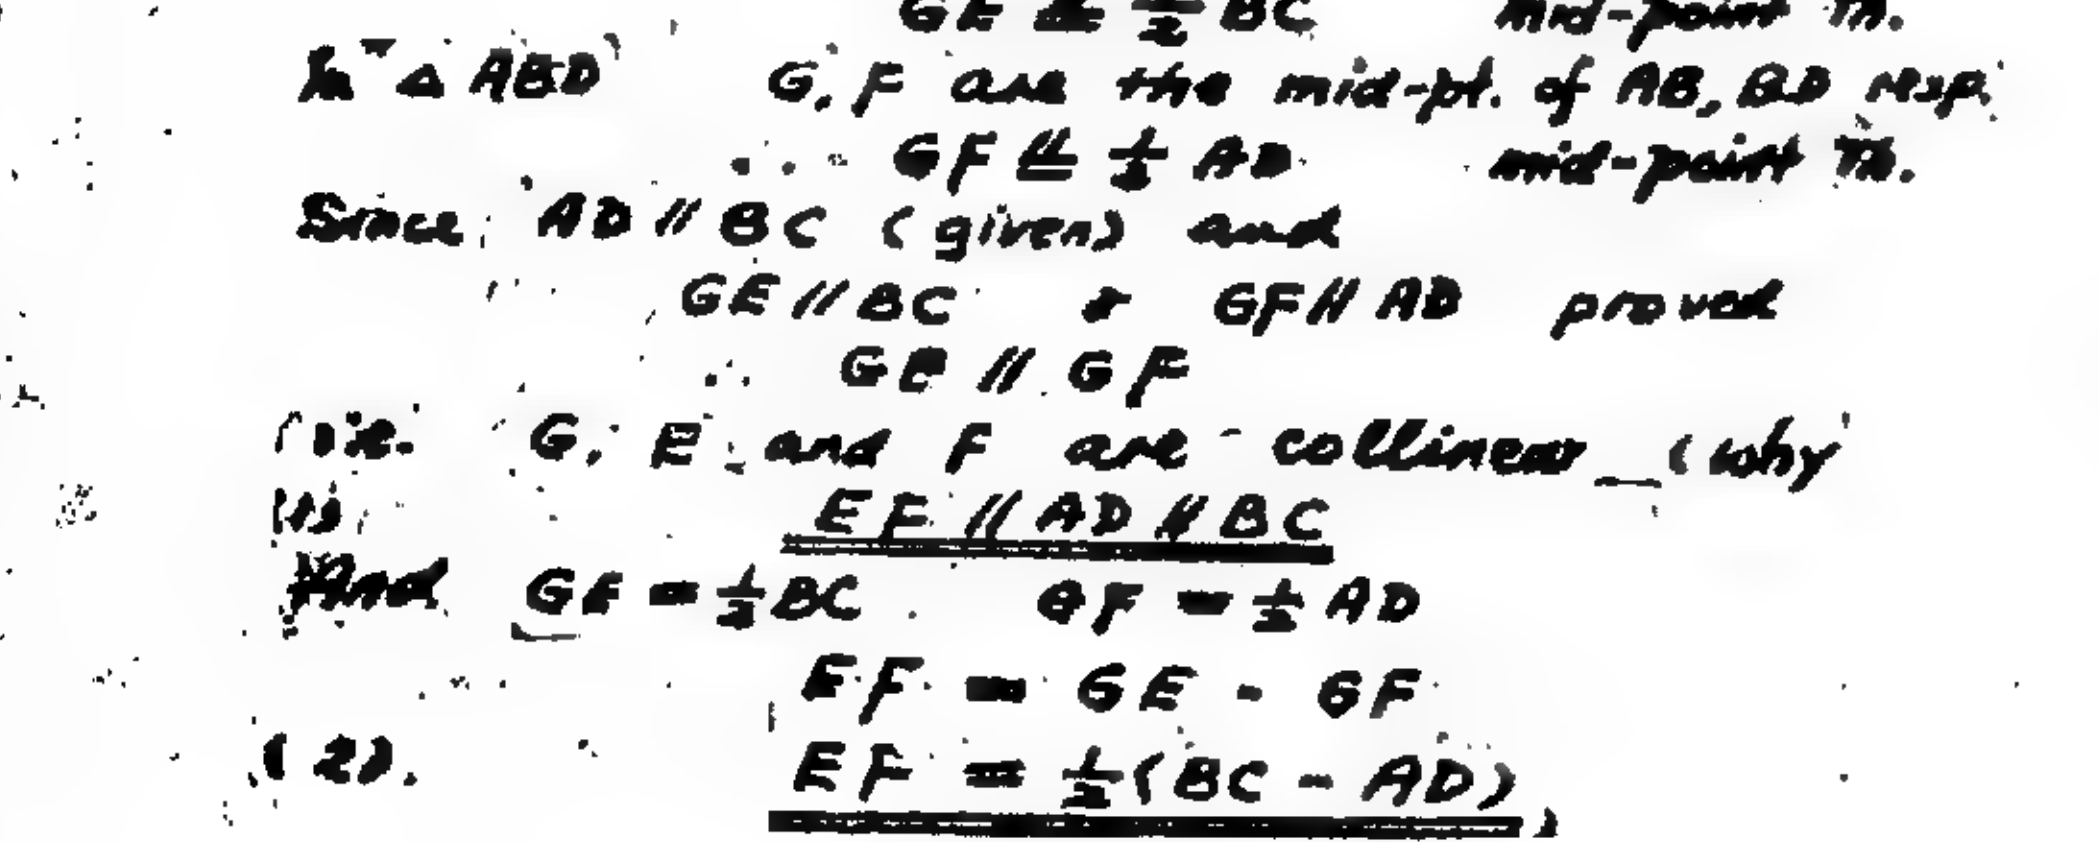 GE ⫽ 1/2 BC mid-point Th.
In △ ABD G, F are the mid-pt. of AB, BD resp.
∴ GF ⫽ 1/2 AD mid-point Th.
Since AD // BC (given) and
GE // BC & GF // AD proved
∴ GE // GF
i.e. G, E and F are collinear (why
(1) EF // AD // BC
And GE = 1/2 BC GF = 1/2 AD
EF = GE - GF
(2). EF = 1/2 (BC - AD)